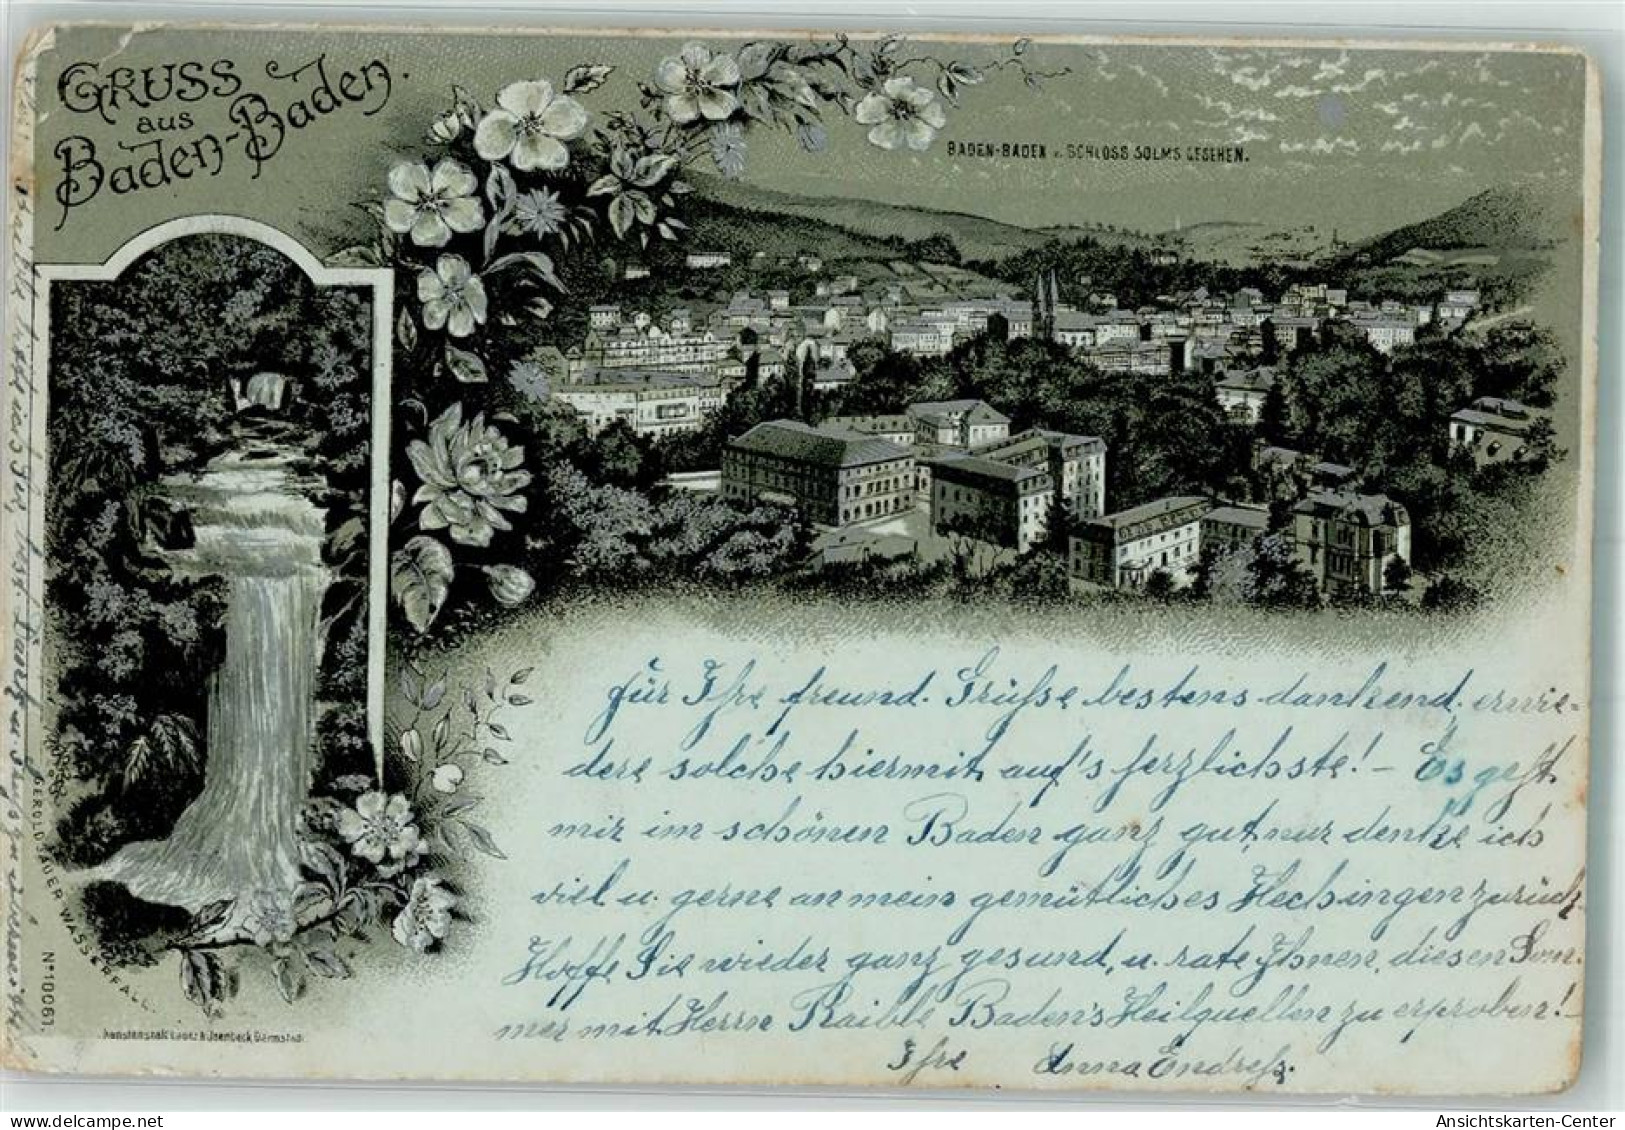 GRUSS
aus
Baden-Baden.
BADEN-BADEN v. SCHLOSS SOLMS GESEHEN.
für Ihre freund. Grüße bestens dankend, erwie-
dere solche hiermit auf's herzlichste! – Es geht
mir im schönen Baden ganz gut, nur denke ich
viel u. gerne an mein gemütliches Hechingen zurück.
Hoffe Sie wieder ganz gesund, u. rate Ihnen, diesen Som-
mer mit Herrn Raible Baden's Heilquellen zu erproben! –
Ihre Anna Endreß.
GEROLDSAUER WASSERFALL.
No 10061.
Kunstanstalt Lautz & Isenbeck, Darmstadt.
Ansichtskarten-Center